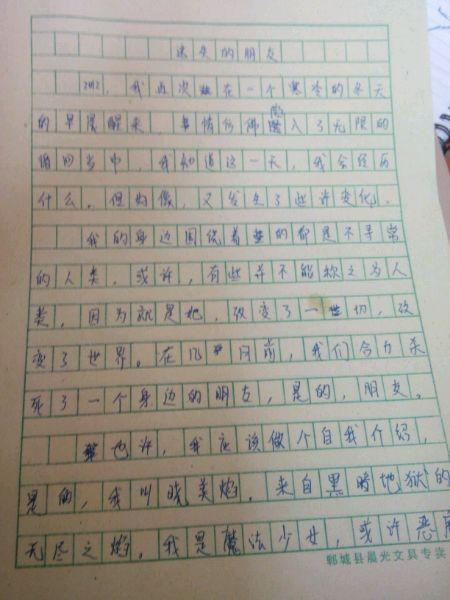 迷失的朋友
2012,我再次在一个寒冷的冬天
的早晨醒来,事情仿佛陷入了无限的
循回当中,我知道这一天,我会经历
什么。但好像,又发生了些许变化。
我的身边围绕着的都是不寻常
的人类,或许,有些并不能称之为人
类,因为就是她,改变了一切,改
变了世界。在几月前,我们合力杀
死了一个身边的朋友,是的,朋友。
也许,我应该做个自我介绍,
是的,我叫晓美焰。来自黑暗地狱的
无尽之焰。我是魔法少女,或许恶魔
郸城县晨光文具专卖